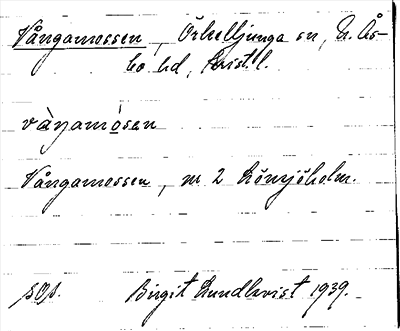 Vångamossen, Örkelljunga sn, N. Ås-
bo hd, Krist. l.
vàŋamósen
Vångamossen, nr 2 Lönsjöholm.
sOs. Birgit Lundkvist 1939.